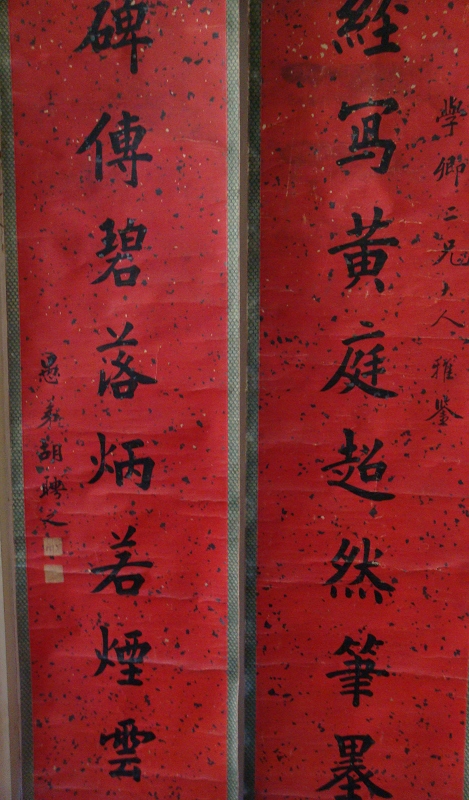 學卿二兄大人雅鑒
經寫黃庭超然筆墨
碑傳碧落炳若煙雲
愚弟胡聘之